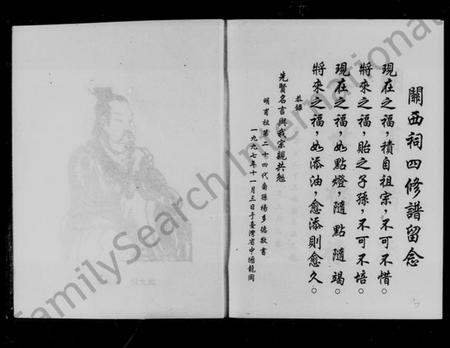 關西祠四修譜留念
現在之福，積自祖宗，不可不惜。
將來之福，貽之子孫，不可不培。
現在之福，如點燈，隨點隨竭。
將來之福，如添油，愈添則愈久。
恭錄
先賢名言與我宗親共勉
明甫社第二十四代裔孫楊多德敬書
一九九七年十一月三日于臺灣省中壢龍岡
FamilySearch International